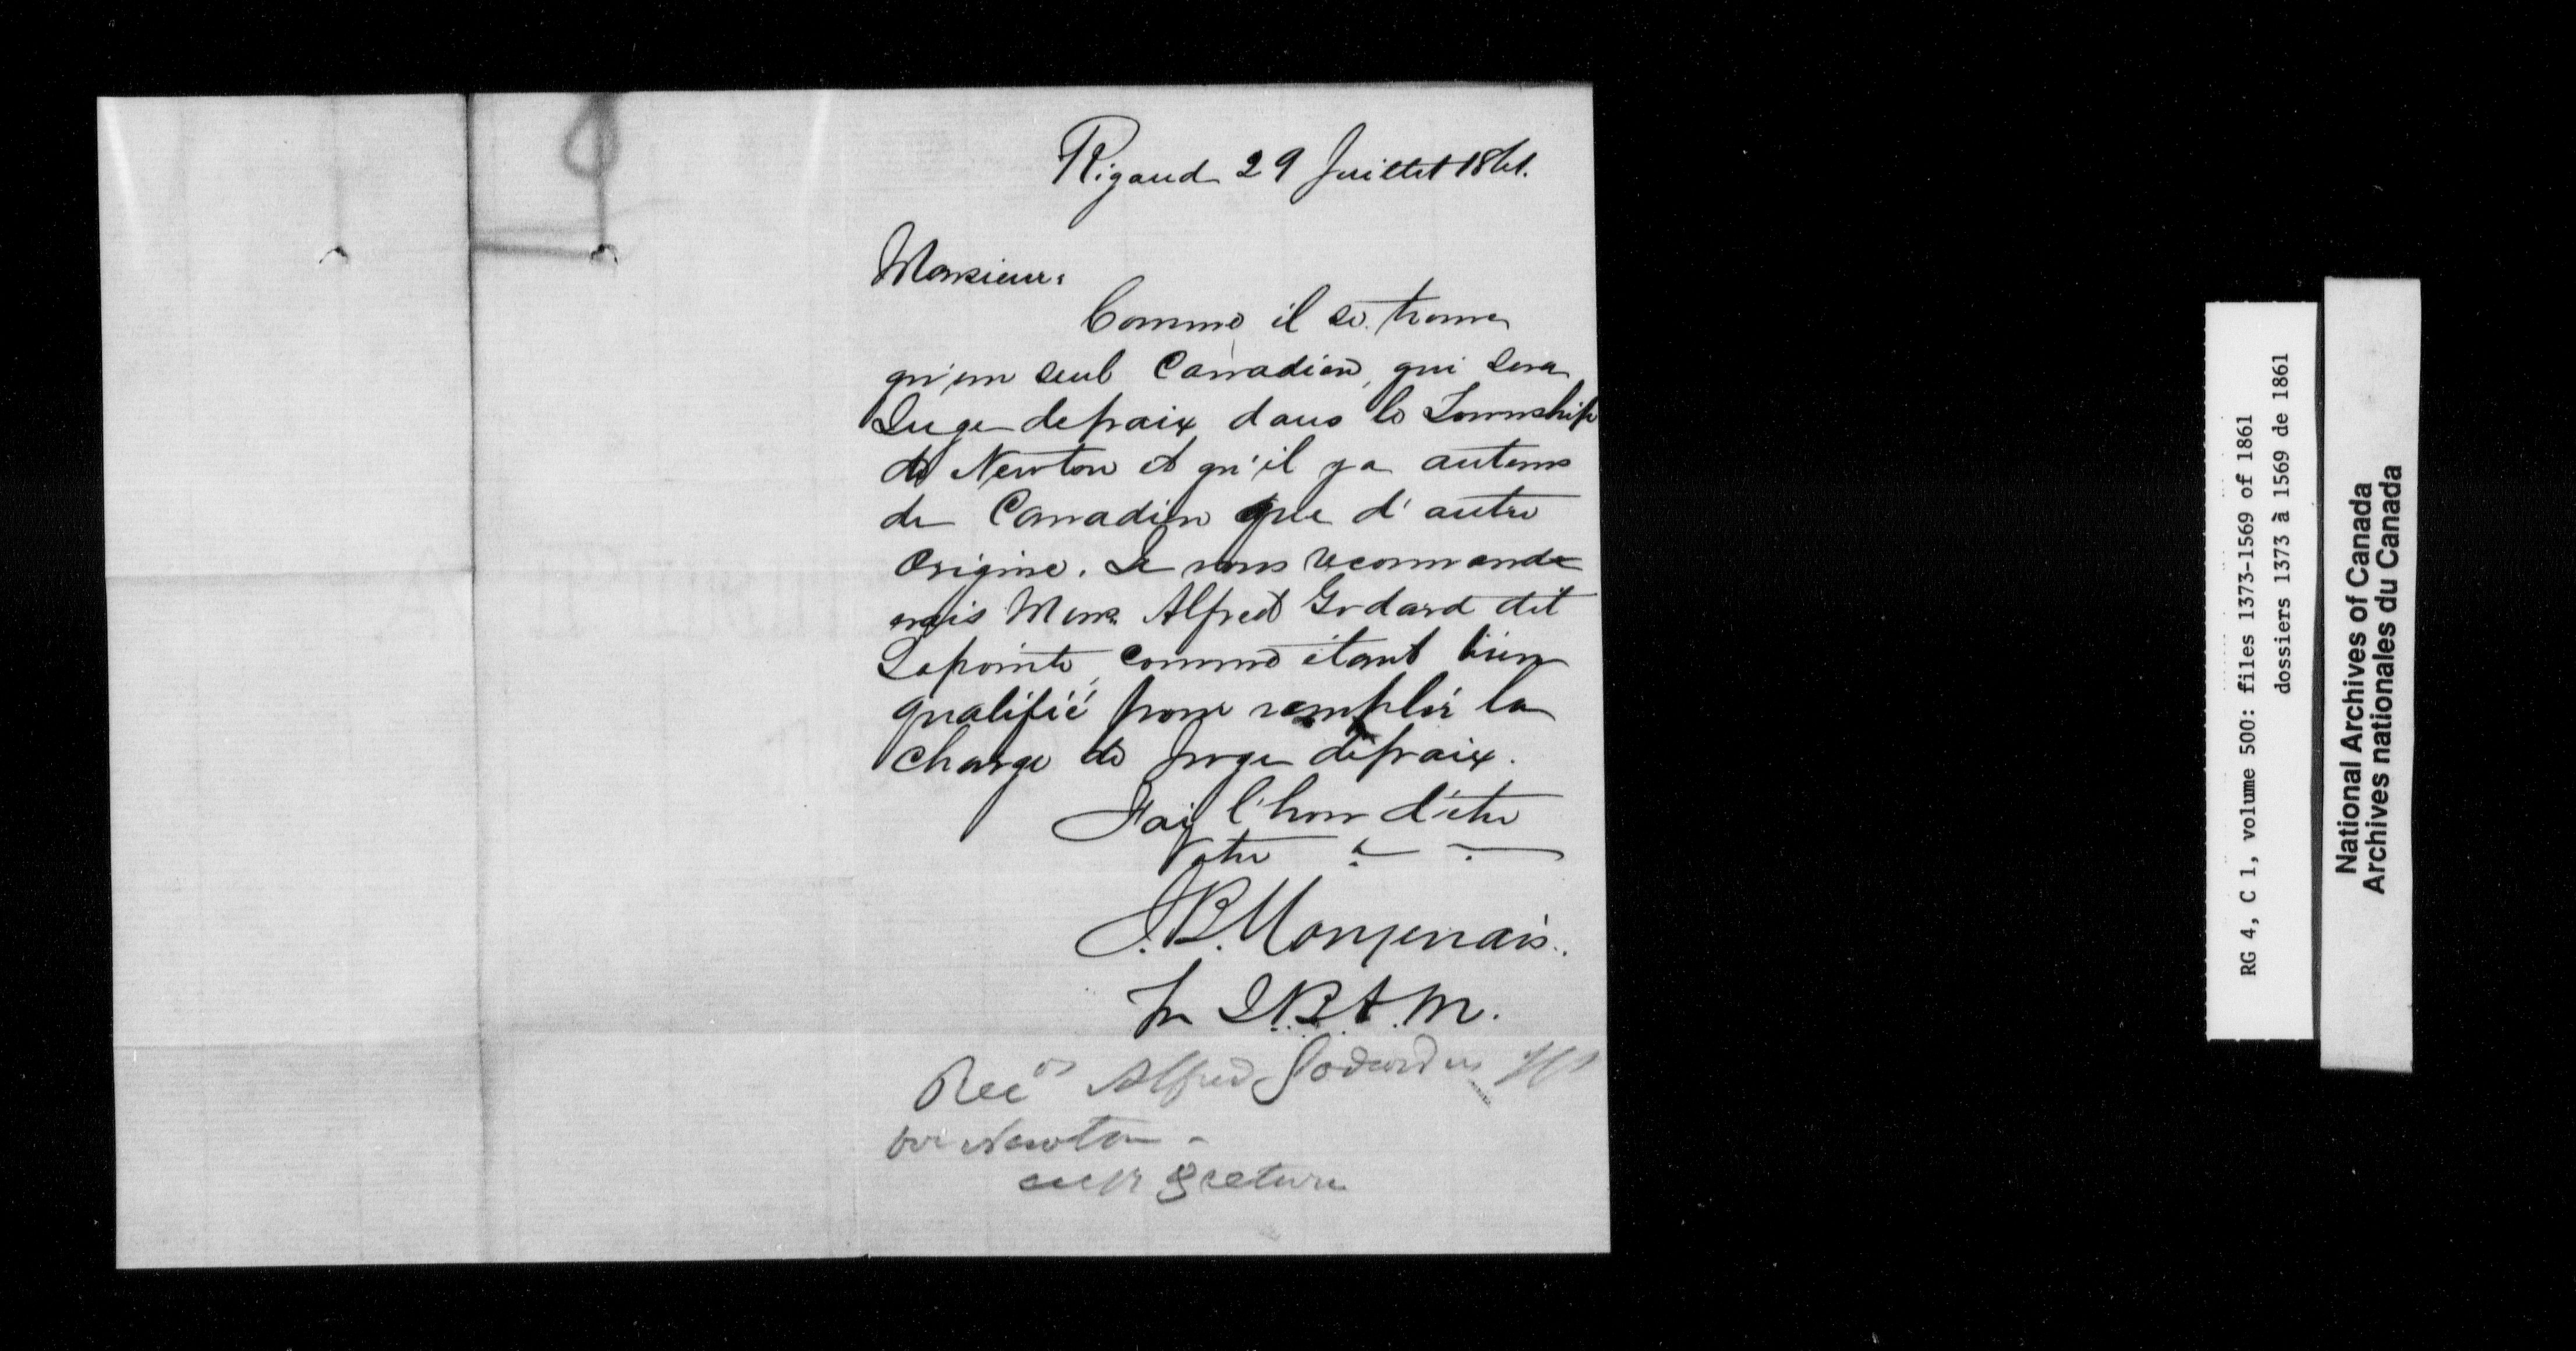 Rigaud 29 Juillet 1861.
Monsieur:
Comme il se trouve
qu'un seul Canadien, qui sera
Juge depaix dans le Township
de Newton et qu'il ya autems
de Canadien que d'autre
Origine. Je vous recommande
rais Mons. Alfred Godard dit
Lapointe, comme étant bien
qualifié pour remplir la
charge de Juge depaix.
J'ai l'honr d'être
Votre
J.B. Mongenais.
J.B.A.M.
Alfred Godard
Newton -
RG 4, C 1, volume 500: files 1373-1569 of 1861
dossiers 1373 à 1569 de 1861
National Archives of Canada
Archives nationales du Canada